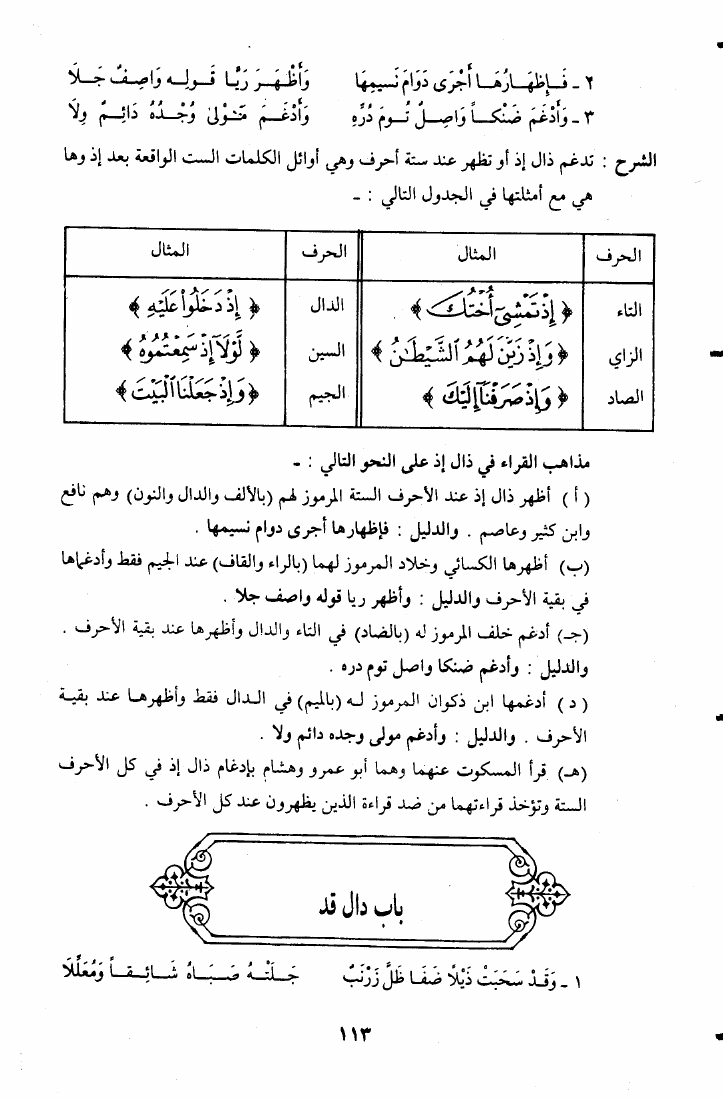 ٢ - فَإِظْهَارُهَا أَجْرَى دَوَامَ نَسِيمِهَا وَأَظْهَرَ رَيَّا قَوْلِهِ وَاصِفٌ جَلَا
٣ - وَأَدْغَمَ ضَنْكاً وَاصِلٌ تُومَ دُرِّهِ وَأَدْغَمَ مَوْلًى وُجْدُهُ دَائِمٌ وِلَا
الشرح : تدغم ذال إذ أو تظهر عند ستة أحرف وهي أوائل الكلمات الست الواقعة بعد إذ وها
هي مع أمثلتها في الجدول التالي : ـ
الحرف المثال الحرف المثال
التاء ﴿ إِذْ تَمْشِىٓ أُخْتُكَ ﴾ الدال ﴿ إِذْ دَخَلُواْ عَلَيْهِ ﴾
الزاي ﴿ وَإِذْ زَيَّنَ لَهُمُ ٱلشَّيْطَٰنُ ﴾ السين ﴿ لَّوْلَآ إِذْ سَمِعْتُمُوهُ ﴾
الصاد ﴿ وَإِذْ صَرَفْنَآ إِلَيْكَ ﴾ الجيم ﴿ وَإِذْ جَعَلْنَا ٱلْبَيْتَ ﴾
مذاهب القراء في ذال إذ على النحو التالي : ـ
( أ ) أظهر ذال إذ عند الأحرف الستة المرموز لهم (بالألف والدال والنون) وهم نافع
وابن كثير وعاصم . والدليل : فإظهارها أجرى دوام نسيمها .
(ب) أظهرها الكسائي وخلاد المرموز لهما (بالراء والقاف) عند الجيم فقط وأدغماها
في بقية الأحرف والدليل : وأظهر ريا قوله واصف جلا .
(جـ) أدغم خلف المرموز له (بالضاد) في التاء والدال وأظهرها عند بقية الأحرف .
والدليل : وأدغم ضنكا واصل توم دره .
( د ) أدغمها ابن ذكوان المرموز له (بالميم) في الدال فقط وأظهرها عند بقية
الأحرف . والدليل : وأدغم مولى وجده دائم ولا .
(هـ) قرأ المسكوت عنهما وهما أبو عمرو وهشام بإدغام ذال إذ في كل الأحرف
الستة وتؤخذ قراءتهما من ضد قراءة الذين يظهرون عند كل الأحرف .
باب دال قد
١ - وَقَدْ سَحَبَتْ ذَيْلًا ضَفَا ظَلَّ زَرْنَبٌ جَلَتْهُ صَبَاهُ شَائِقاً وَمُعَلَّلَا
١١٣